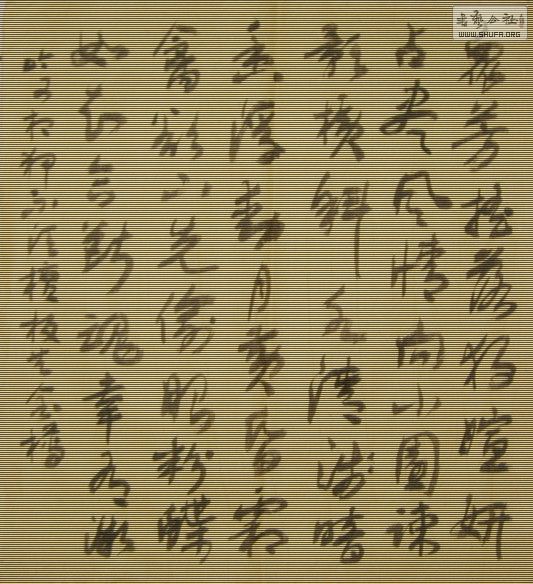 眾芳摇落獨暄妍
占尽風情向小園疎
影横斜水清浅暗
香浮動月黄昏霜
禽欲下先偷眼粉蝶
如知合斷魂幸有微
吟可相狎不須檀板共金樽
书艺公社
WWW.SHUFA.ORG